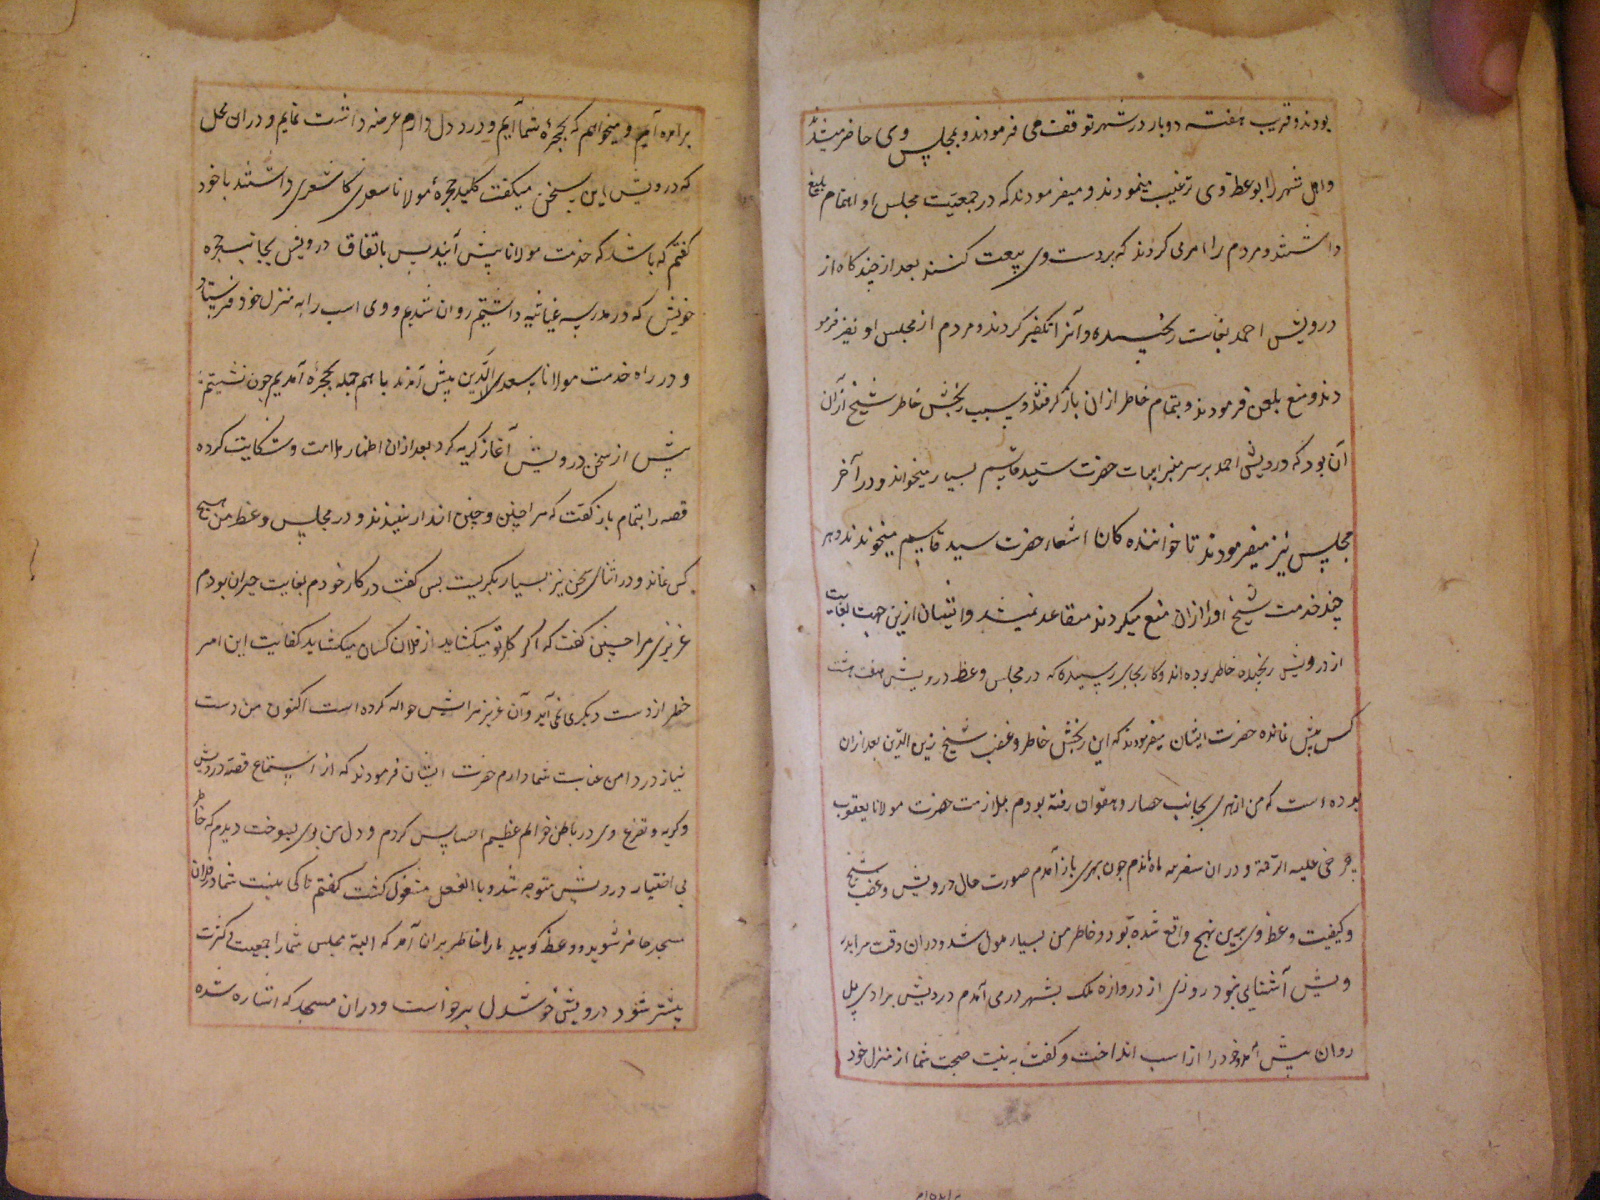 بودند و قریب هفته دوبار در شهر توقف می فرمودند و بمجلس وی حاضر میشدند
و اهل شهر را بوعظ وی ترغیب مینمودند و میفرمودند که در جمعیت مجلس او اهتمام بلیغ
داشتند و مردم را امر می کردند که بر دست وی بیعت کنند بعد از چند کاه از
درویش احمد بغایت رنجیده و آنرا تکفیر کردند و مردم از مجلس او نیز فرمو
دند و منع بلیغ فرمودند و بتمام خاطر ازان باز گرفتند و سبب رنجش خاطر شیخ ازان
آن بود که درویش احمد بر سر منبر ابیات حضرت سید قاسم بسیار میخواند و در آخر
مجلس نیز میفرمودند تا خوانندهکان اشعار حضرت سید قاسم میخوندند و هر
چند خدمت شیخ اورا ازان منع میکردند متقاعد نمیشد و ایشان ازین جهت بغایت
از درویش رنجیده خاطر بوده اند و کار بجایی رسیده که در مجلس وعظ درویش هفت هشت
کس بیش نمانده حضرت ایشان میفرمودند که این رنجش خاطر و غضب شیخ زین الدین بعد ازان
بوده است که من از هری بجانب حصار و هلغتو رفته بودم بملازمت حضرت مولانا یعقوب
چرخی علیه الرحمة و دران سفر سه ماه ماندم جون بهری باز آمدم صورت حال درویش و غضب شیخ
و کیفیت وعظ وی برین نهج واقع شده بود و خاطر من بسیار ملول شد و دران وقت مرا بدر
ویش آشنایی نبود روزی از دروازه ملک بشهر در می آمدم درویش برادی پل
روان پیش آمد و خود را از اسب انداخت و گفت به نیت صحبت شما از منزل خود
برآمده آیم و میخواهم که بحجرهٔ شما آیم و درد دل دارم عرضه داشت نمایم و دران محل
که درویش این سخن میگفت کلید حجرهٔ مولانا سعدی کاشغری داشتند با خود
گفتم که باشد که خدمت مولانا پیش آیند پس باتفاق درویش بجانب حجره
خویش که در مدرسه غیاثیه داشتیم روان شدیم و وی اسب را به منزل خود فرستاد
و در راه خدمت مولانا سعدالدین پیش آمدند با هم جمله بحجره آمدیم جون نشستیم
پیش از سخن درویش آغاز گریه کرد بعد ازان اظهار ملامت و شکایت کرده
قصه را بتمام باز گفت که مرا چنین و چنین انداز بنیدند و در مجلس وعظ من هیچ
کس نماند و در اثنای سخن نیز بسیار بگریست پس گفت در کار خودم بغایت حیران بودم
عزیزی مرا چنین گفت که اگر کار تو میکشاید از فلان کسان میکشاید کفایت این امر
خطر از دست دیگری نمی آید و آن عزیز مرا پیش حواله کرده است اکنون من دست
نیاز در دامن عنایت شما دارم حضرت ایشان فرمودند که از استماع قصهٔ درویش
و گریه و تضرع وی در باطن خود الم عظیم احساس کردم و دل من بوی بسوخت دیدم که خاطر
بی اختیار درویش متوجه شد و بالفعل مشغول گشت گفتم تا کی بنیت شما در فلان
مسجد حاضر شوید و وعظ گویید ما را خاطر بران آمد که البته مجلس شما را جمعیت و کثرت
بیشتر شود درویش خوشدل برخواست و دران مسجد که اشاره شده